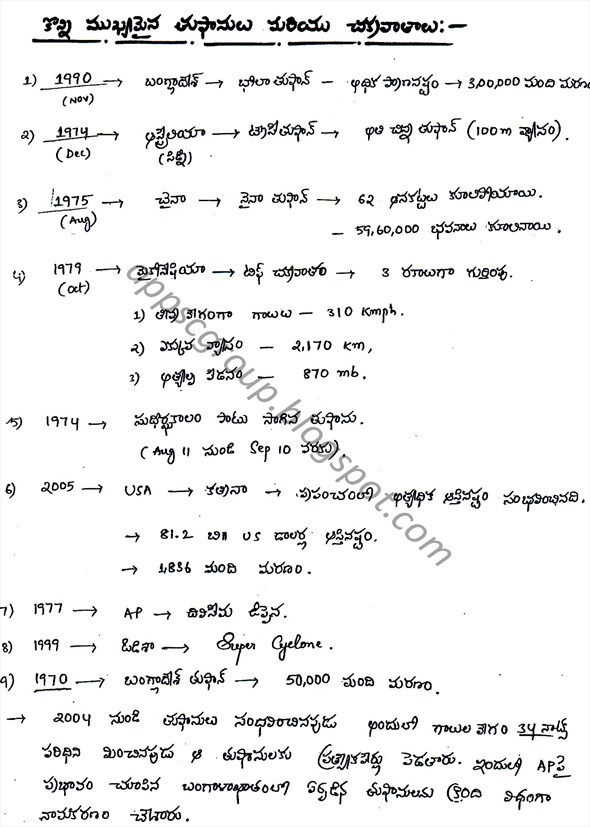 కొన్ని ముఖ్యమైన తుఫానులు మరియు చక్రవాతాలు:-
1) 1990 → బంగ్లాదేశ్ → భోలా తుఫాన్ - అధిక ప్రాణనష్టం → 3,00,000 మంది మరణం
(Nov)
2) 1974 → ఆస్ట్రేలియా → ట్రాసీ తుఫాన్ → అతి చిన్న తుఫాన్ (100m వ్యాసం).
(Dec) (సిడ్నీ)
3) 1975 → చైనా → నైనా తుఫాన్ → 62 ఆనకట్టలు కూలిపోయాయి.
(Aug) - 59,60,000 భవనాలు కూలినాయి.
4) 1979 → మైక్రోనేషియా → టిప్ చక్రవాతం → 3 రకాలుగా గుర్తింపు.
(Oct) 1) తీవ్ర వేగంగా గాలులు - 310 Kmph.
2) ఎక్కువ వ్యాసం - 2,170 km,
3) అత్యల్ప పీడనం - 870 mb.
5) 1974 → సుధీర్ఘకాలం పాటు సాగిన తుఫాను.
(Aug 11 నుండి Sep 10 వరకు).
6) 2005 → USA → కత్రినా → ప్రపంచంలో అత్యధిక ఆస్తినష్టం సంభవించినది.
→ 81.2 బి॥ US డాలర్ల ఆస్తినష్టం.
→ 1,836 మంది మరణం.
7) 1977 → AP → దివిసీమ ఉప్పెన.
8) 1999 → ఓడిశా → Super Cyclone.
9) 1970 → బంగ్లాదేశ్ తుఫాన్ → 50,000 మంది మరణం.
→ 2004 నుండి తుఫానులు సంభవించినపుడు అందులో గాలుల వేగం 34 నాట్స్
పరిధిని మించినపుడు ఆ తుఫానులకు ప్రత్యేకపేర్లు పెడతారు. ఇందులో APపై
ప్రభావం చూపిన బంగాళాఖాతంలో ఏర్పడిన తుఫానులను క్రింది విధంగా
నామకరణం చేశారు.
appscgroup.blogspot.com